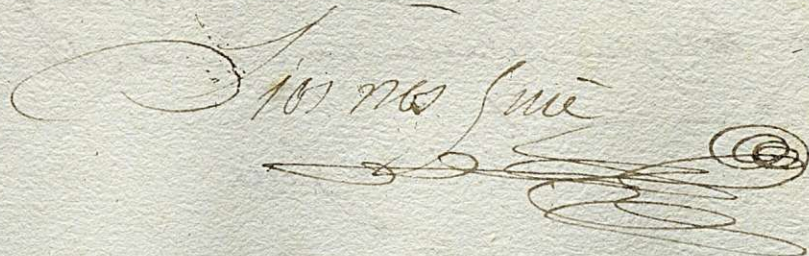 Dios nos Guie